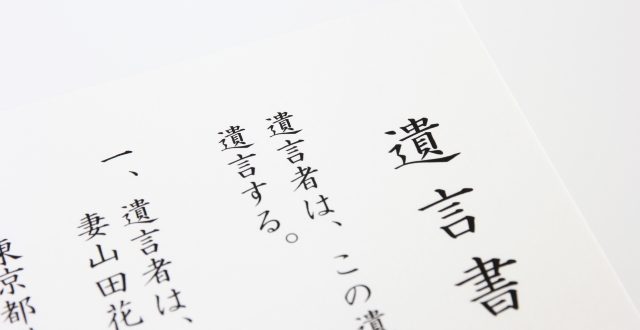 遺言書
遺言者は、この遺
遺言する。
一、遺言者は、
妻山田花
東京都